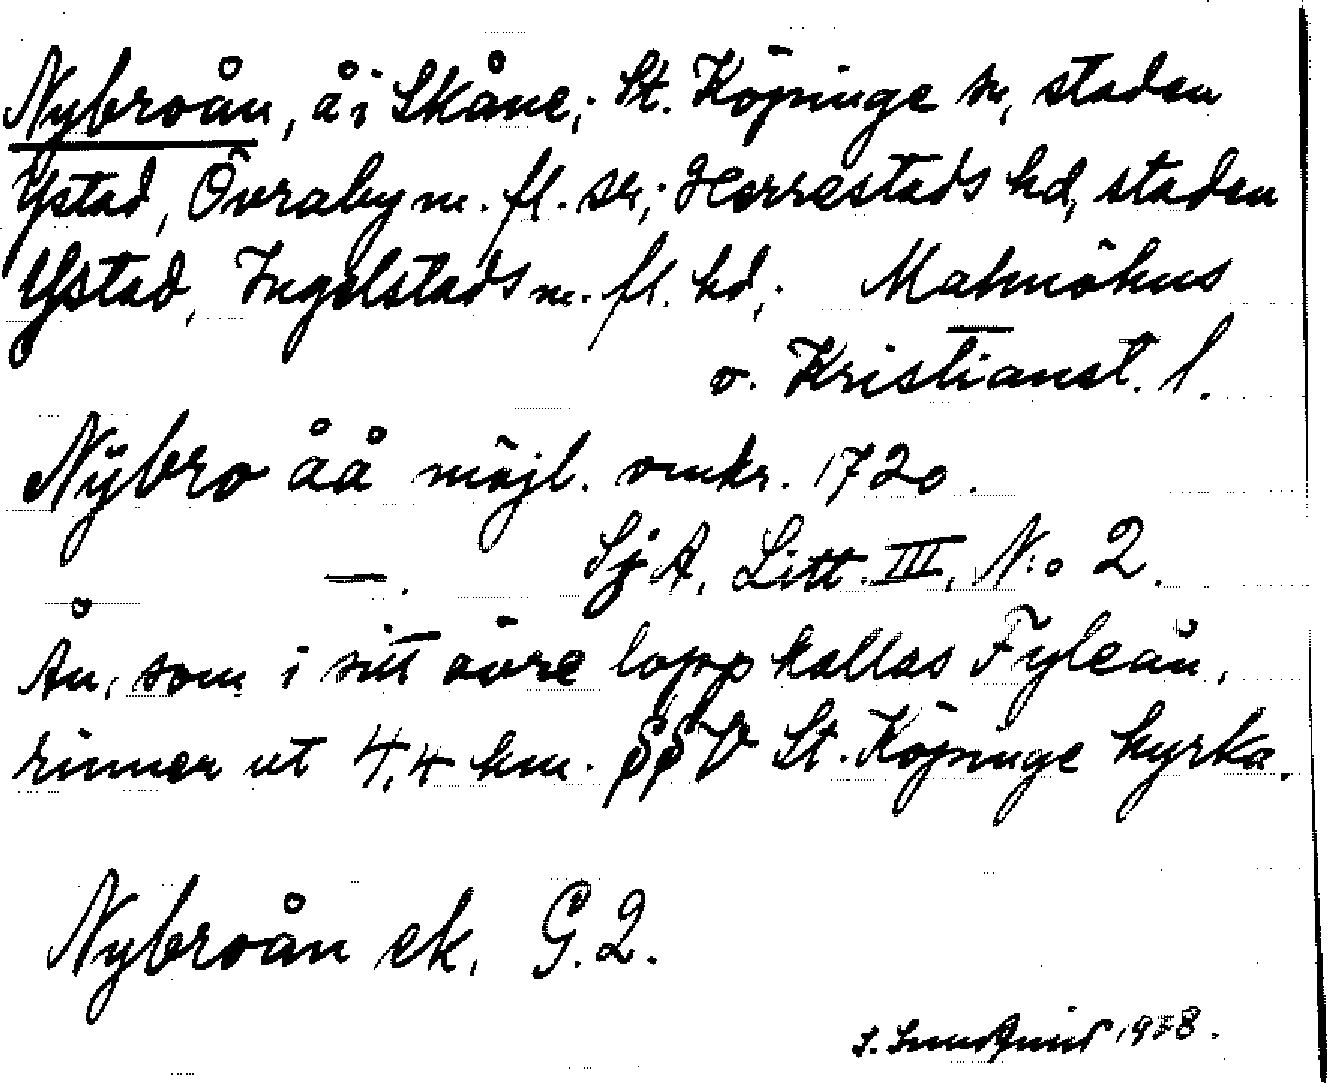 Nybroån, å i Skåne; St. Köpinge sn, staden
Ystad, Övraby m. fl. snr; Herrestads hd, staden
Ystad, Ingelstads m. fl. hd; Malmöhus
o. Kristianst. l.
Nÿbro åå möjl. omkr. 1720.
—. SjA, Litt. III, N:o 2.
Ån, som i sitt övre lopp kallas Fyleån,
rinner ut 4,4 km. V St. Köpinge kyrka.
Nybroån ek. G. 2.